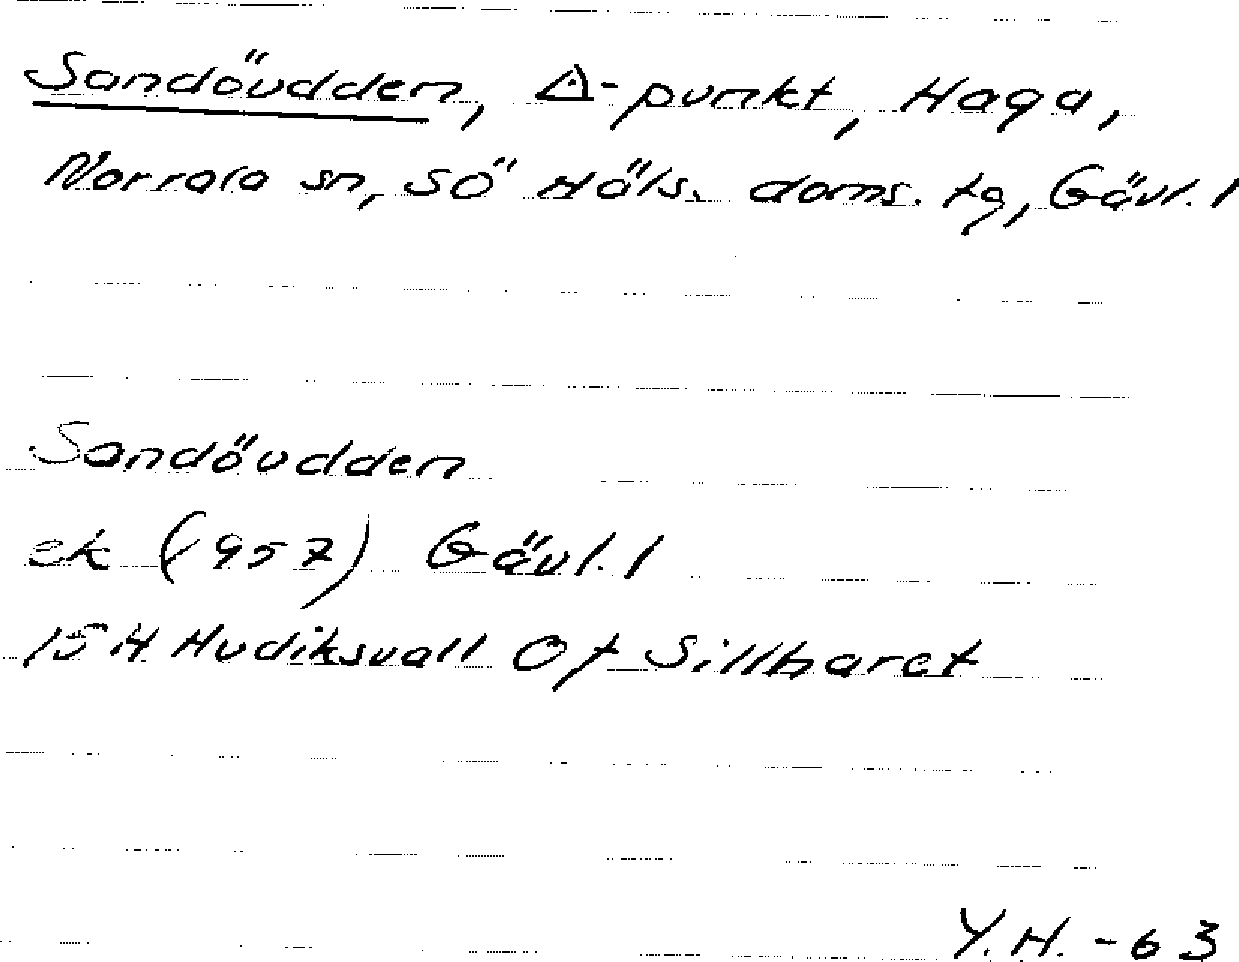 Sandöudden, △-punkt, Haga,
Norrala sn, SÖ Häls. doms. tg, Gävl. l
Sandöudden
ek (1957) Gävl. l
15 H Hudiksvall Of Sillharet
Y.H. -63